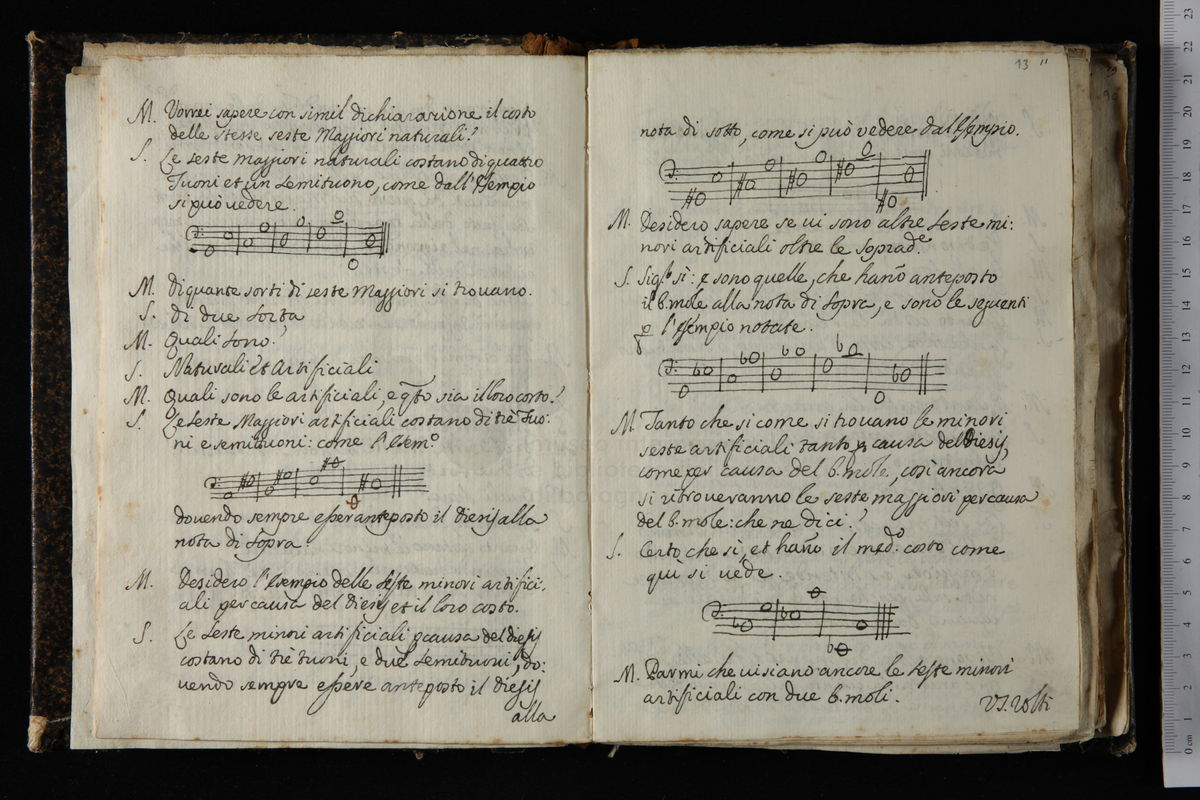 M. Vorrei sapere con simil dichiarazione il costo
delle stesse seste Maggiori naturali?
S. Le seste maggiori naturali costano di quattro
Tuoni et un semituono, come dall'Esempio
si può vedere.
M. Di quante sorti di seste Maggiori si trovano.
S. di due sorta
M. Quali sono?
S. Naturali et Artificiali
M. Quali sono le artificiali, e qto sia il loro costo?
S. Le seste Maggiori artificiali costano di trè Tuo:
ni e semituoni: come l'Esemo
dovendo sempre esser anteposto il diesis alla
nota di sopra.
M. Desidero l'esempio delle seste minori artifici:
ali per causa del diesis et il loro costo.
S. Le seste minori artificiali p causa del diesis
costano di trè tuoni, e due semituoni, do:
vendo sempre essere anteposto il diesis
alla
13 11
nota di sotto, come si può vedere dall'Esempio.
M. Desidero sapere se vi sono altre seste mi:
nori artificiali oltre le sopradte.
S. Sigr sì: e sono quelle, che hano anteposto
il b.mole alla nota di sopra, e sono le seguenti
p l'esempio notate.
M Tanto che si come si trovano le minori
seste artificiali tanto p causa del diesis,
come per causa del b.mole, così ancora
si ritroveranno le seste maggiori per causa
del b.mole: che ne dici?
S. Certo che sì, et hano il medo. costo come
quì si vede.
M. Parmi che vi siano ancore le seste minori
artificiali con due b.moli.
VS. volti
23
22
21
20
19
18
17
16
15
14
13
12
11
10
9
8
7
6
5
4
3
2
1
0 cm